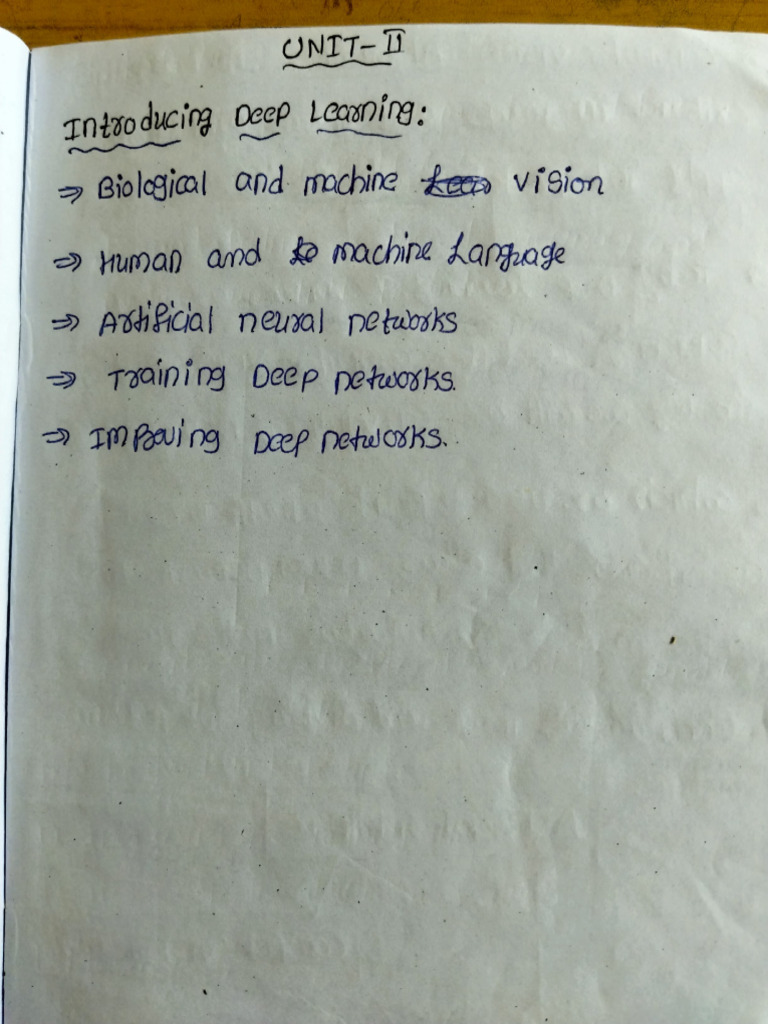 UNIT-II
Introducing Deep Learning:
⇒ Biological and machine vision
⇒ Human and machine Language
⇒ Artificial neural networks
⇒ Training Deep networks.
⇒ Improving Deep networks.